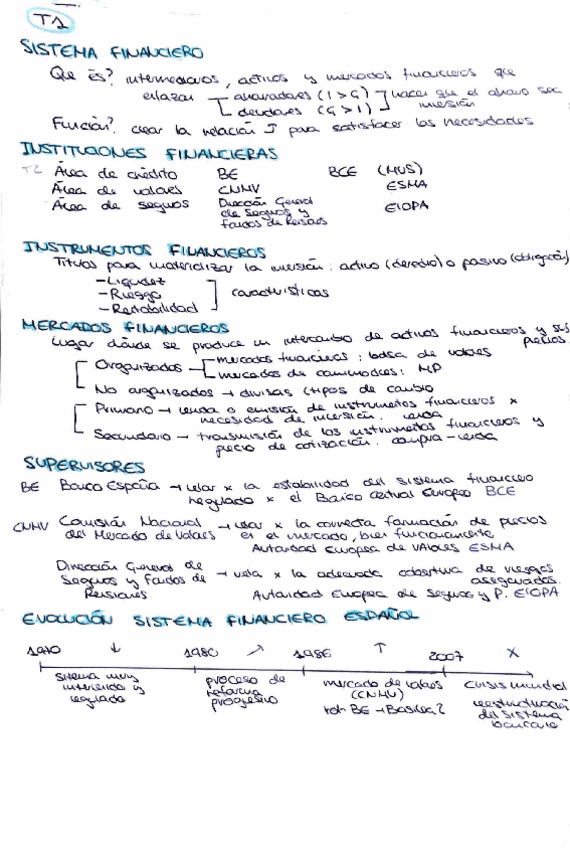 T1
SISTEMA FINANCIERO
Que és? intermediarios, activos y mercados financieros que
enlazan ahorradores (I > G) hacer que el ahorro sea
deudores (G > I) inversión
Función? crear la relación para satisfacer las necesidades
INSTITUCIONES FINANCIERAS
T2 Área de crédito BE BCE (MUS)
Área de valores CNMV ESMA
Área de seguros Dirección General
de Seguros y EIOPA
Fondos de Pensiones
INSTRUMENTOS FINANCIEROS
Títulos para materializar la inversión: activo (derecho) o pasivo (obligación)
- Liquidez
- Riesgo características
- Rentabilidad
MERCADOS FINANCIEROS
Lugar dónde se produce un intercambio de activos financieros y sus
precios.
Organizados mercados financieros: bolsa de valores
mercados de commodities: MP
No organizados → divisas (tipos de cambio
Primario → venta o emisión de instrumentos financieros x
necesidad de inversión. venta
Secundario → transmisión de los instrumentos financieros y
precio de cotización. compra-venta
SUPERVISORES
BE Banco España → velar x la estabilidad del sistema financiero
regulado x el Banco central Europeo BCE
CNMV Comisión Nacional → velar x la correcta formación de precios
del Mercado de Valores en el mercado, bien funcionamiento
Autoridad Europea de Valores ESMA
Dirección General de
Seguros y Fondos de → vela x la adecuada cobertura de riesgos
Pensiones asegurados.
Autoridad Europea de Seguros y P. EIOPA
EVOLUCIÓN SISTEMA FINANCIERO ESPAÑOL
1940 ↓ 1980 ↗ 1986 ↑ 2007 x
sistema muy proceso de mercado de valores crisis mundial
intervenido y reforma (CNMV) reestructuración
regulado progresivo BE → Basilea 2 del sistema
bancario